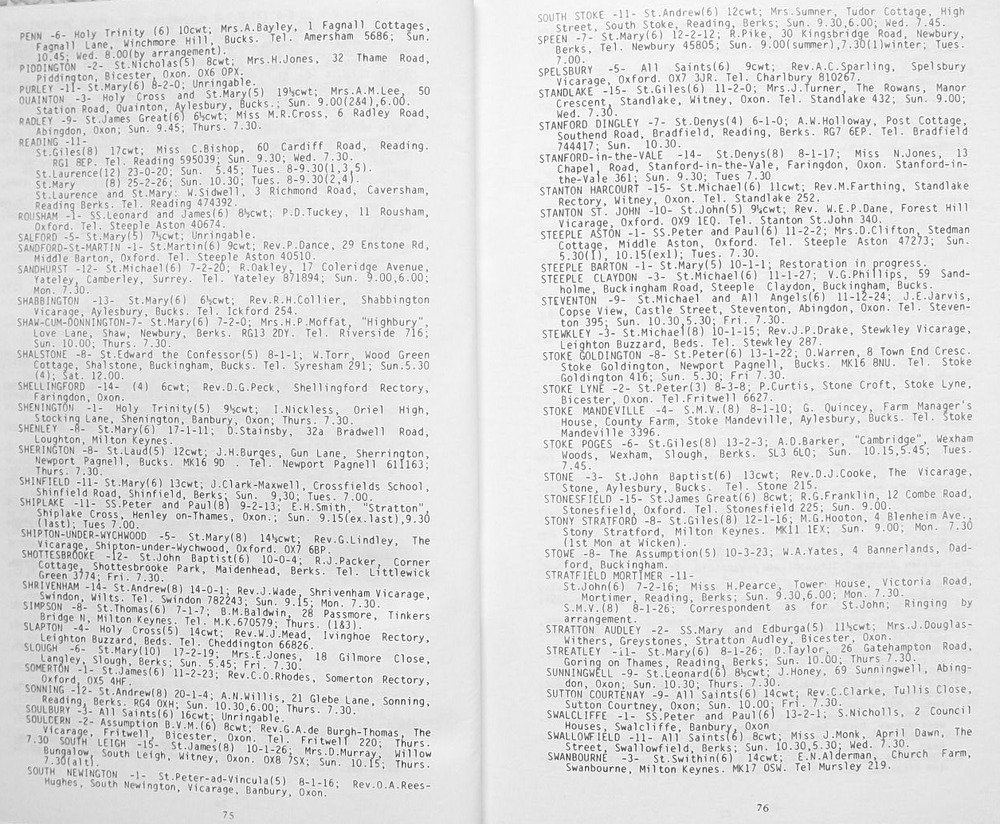 PENN -6- Holy Trinity (6) 10cwt; Mrs.A.Bayley, 1 Fagnall Cottages,
Fagnall Lane, Winchmore Hill, Bucks. Tel. Amersham 5686; Sun.
10.45; Wed. 8.00(by arrangement).
PIDDINGTON -2- St.Nicholas(5) 8cwt; Mrs.H.Jones, 32 Thame Road,
Piddington, Bicester, Oxon. OX6 0PX.
PURLEY -11- St.Mary(6) 8-2-0; Unringable.
QUAINTON -3- Holy Cross and St.Mary(5) 19½cwt; Mrs.A.M.Lee, 50
Station Road, Quainton, Aylesbury, Bucks.; Sun. 9.00(2&4),6.00.
RADLEY -9- St.James Great(6) 6½cwt; Miss M.R.Cross, 6 Radley Road,
Abingdon, Oxon; Sun. 9.45; Thurs. 7.30.
READING -11-
St.Giles(8) 17cwt; Miss C.Bishop, 60 Cardiff Road, Reading.
RG1 8EP. Tel. Reading 595039; Sun. 9.30; Wed. 7.30.
St.Laurence(12) 23-0-20; Sun. 5.45; Tues. 8-9.30(1,3,5).
St.Mary (8) 25-2-26; Sun. 10.30; Tues. 8-9.30(2,4).
St.Laurence and St.Mary: W.Sidwell, 3 Richmond Road, Caversham,
Reading Berks. Tel. Reading 474392.
ROUSHAM -1- SS.Leonard and James(6) 8½cwt; P.D.Tuckey, 11 Rousham,
Oxford. Tel. Steeple Aston 40674.
SALFORD -5- St.Mary(5) 7½cwt; Unringable.
SANDFORD-St-MARTIN -1- St.Martin(6) 9cwt; Rev.P.Dance, 29 Enstone Rd,
Middle Barton, Oxford. Tel. Steeple Aston 40510.
SANDHURST -12- St.Michael(6) 7-2-20; R.Oakley, 17 Coleridge Avenue,
Yateley, Camberley, Surrey. Tel. Yateley 871894; Sun. 9.00,6.00;
Mon. 7.30.
SHABBINGTON -13- St.Mary(6) 6½cwt; Rev.R.H.Collier, Shabbington
Vicarage, Aylesbury, Bucks. Tel. Ickford 254.
SHAW-CUM-DONNINGTON-7- St.Mary(6) 7-2-0; Mrs.H.P.Moffat, "Highbury",
Love Lane, Shaw, Newbury, Berks. RG13 2DY. Tel. Riverside 716;
Sun. 10.00; Thurs. 7.30.
SHALSTONE -8- St.Edward the Confessor(5) 8-1-1; W.Torr, Wood Green
Cottage, Shalstone, Buckingham, Bucks. Tel. Syresham 291; Sun.5.30
(4); Sat. 12.00.
SHELLINGFORD -14- (4) 6cwt; Rev.D.G.Peck, Shellingford Rectory,
Faringdon, Oxon.
SHENINGTON -1- Holy Trinity(5) 9½cwt; I.Nickless, Oriel High,
Stocking Lane, Shenington, Banbury, Oxon; Thurs. 7.30.
SHENLEY -8- St.Mary(6) 17-1-11; D.Stainsby, 32a Bradwell Road,
Loughton, Milton Keynes.
SHERINGTON -8- St.Laud(5) 12cwt; J.H.Burges, Gun Lane, Sherrington,
Newport Pagnell, Bucks. MK16 9D . Tel. Newport Pagnell 611163;
Thurs. 7.30.
SHINFIELD -11- St.Mary(6) 13cwt; J.Clark-Maxwell, Crossfields School,
Shinfield Road, Shinfield, Berks; Sun. 9,30; Tues. 7.00.
SHIPLAKE -11- SS.Peter and Paul(8) 9-2-13; E.H.Smith, "Stratton",
Shiplake Cross, Henley on-Thames, Oxon.; Sun. 9.15(ex.last),9.30
(last); Tues 7.00.
SHIPTON-UNDER-WYCHWOOD -5- St.Mary(8) 14½cwt; Rev.G.Lindley, The
Vicarage, Shipton-under-Wychwood, Oxford. OX7 6BP.
SHOTTESBROOKE -12- St.John Baptist(6) 10-0-4; R.J.Packer, Corner
Cottage, Shottesbrooke Park, Maidenhead, Berks. Tel. Littlewick
Green 3774; Fri. 7.30.
SHRIVENHAM -14- St.Andrew(8) 14-0-1; Rev.J.Wade, Shrivenham Vicarage,
Swindon, Wilts. Tel. Swindon 782243; Sun. 9.15; Mon. 7.30.
SIMPSON -8- St.Thomas(6) 7-1-7; B.M.Baldwin, 28 Passmore, Tinkers
Bridge N, Milton Keynes. Tel. M.K.670579; Thurs. (1&3).
SLAPTON -4- Holy Cross(5) 14cwt; Rev.W.J.Mead, Ivinghoe Rectory,
Leighton Buzzard, Beds. Tel. Cheddington 66826.
SLOUGH -6- St.Mary(10) 17-2-19; Mrs.E.Jones, 18 Gilmore Close,
Langley, Slough, Berks; Sun. 5.45; Fri. 7.30.
SOMERTON -1- St.James(6) 11-2-23; Rev.C.O.Rhodes, Somerton Rectory,
Oxford, OX5 4HF.
SONNING -12- St.Andrew(8) 20-1-4; A.N.Willis, 21 Glebe Lane, Sonning,
Reading, Berks. RG4 0XH; Sun. 10.30,6.00; Thurs. 7.30.
SOULBURY -3- All Saints(6) 16cwt; Unringable.
SOULDERN -2- Assumption B.V.M.(6) 8cwt; Rev.G.A.de Burgh-Thomas, The
Vicarage, Fritwell, Bicester, Oxon. Tel. Fritwell 220; Thurs.
7.30 SOUTH LEIGH -15- St.James(8) 10-1-26; Mrs.D.Murray, Willow
Bungalow, South Leigh, Witney, Oxon. OX8 7SX; Sun. 10.15; Thurs.
7.30(alt).
SOUTH NEWINGTON -1- St.Peter-ad-Vincula(5) 8-1-16; Rev.O.A.Rees-
Hughes, South Newington, Vicarage, Banbury, Oxon.
75
SOUTH STOKE -11- St.Andrew(6) 12cwt; Mrs.Sumner, Tudor Cottage, High
Street, South Stoke, Reading, Berks; Sun. 9.30,6.00; Wed. 7.45.
SPEEN -7- St.Mary(6) 12-2-12; R.Pike, 30 Kingsbridge Road, Newbury,
Berks, Tel. Newbury 45805; Sun. 9.00(summer),7.30(1)winter; Tues.
7.00.
SPELSBURY -5- All Saints(6) 9cwt; Rev.A.C.Sparling, Spelsbury
Vicarage, Oxford. OX7 3JR. Tel. Charlbury 810267.
STANDLAKE -15- St.Giles(6) 11-2-0; Mrs.J.Turner, The Rowans, Manor
Crescent, Standlake, Witney, Oxon. Tel. Standlake 432; Sun. 9.00;
Wed. 7.30.
STANFORD DINGLEY -7- St.Denys(4) 6-1-0; A.W.Holloway, Post Cottage,
Southend Road, Bradfield, Reading, Berks. RG7 6EP. Tel. Bradfield
744417; Sun. 10.30.
STANFORD-in-the-VALE -14- St.Denys(8) 8-1-17; Miss N.Jones, 13
Chapel, Road, Stanford-in-the-Vale, Faringdon, Oxon. Stanford-in-
the-Vale 361; Sun. 9.30; Tues 7.30
STANTON HARCOURT -15- St.Michael(6) 11cwt; Rev.M.Farthing, Standlake
Rectory, Witney, Oxon. Tel. Standlake 252.
STANTON ST. JOHN -10- St.John(5) 9½cwt; Rev. W.E.P.Dane, Forest Hill
Vicarage, Oxford. OX9 1EQ. Tel. Stanton St.John 340.
STEEPLE ASTON -1- SS.Peter and Paul(6) 11-2-2; Mrs.D.Clifton, Stedman
Cottage, Middle Aston, Oxford. Tel. Steeple Aston 47273; Sun.
5.30(1), 10.15(ex1); Tues. 7.30.
STEEPLE BARTON -1- St.Mary(5) 10-1-1; Restoration in progress.
STEEPLE CLAYDON -3- St.Michael(6) 11-1-27; V.G.Phillips, 59 Sand-
holme, Buckingham Road, Steeple Claydon, Buckingham, Bucks.
STEVENTON -9- St.Michael and All Angels(6) 11-12-24; J.E.Jarvis,
Copse View, Castle Street, Steventon, Abingdon, Oxon. Tel. Steven-
ton 395; Sun. 10.30,5.30; Fri. 7.30.
STEWKLEY -3- St.Michael(8) 10-1-15; Rev.J.P.Drake, Stewkley Vicarage,
Leighton Buzzard, Beds. Tel. Stewkley 287.
STOKE GOLDINGTON -8- St.Peter(6) 13-1-22; O.Warren, 8 Town End Cresc.
Stoke Goldington, Newport Pagnell, Bucks. MK16 8NU. Tel. Stoke
Goldington 416; Sun. 5.30; Fri 7.30.
STOKE LYNE -2- St.Peter(3) 8-3-8; P.Curtis, Stone Croft, Stoke Lyne,
Bicester, Oxon. Tel.Fritwell 6627.
STOKE MANDEVILLE -4- S.M.V.(8) 8-1-10; G. Quincey, Farm Manager's
House, County Farm, Stoke Mandeville, Aylesbury, Bucks. Tel. Stoke
Mandeville 3396.
STOKE POGES -6- St.Giles(8) 13-2-3; A.D.Barker, "Cambridge", Wexham
Woods, Wexham, Slough, Berks. SL3 6LQ; Sun. 10.15,5.45; Tues.
7.45.
STONE -3- St.John Baptist(6) 13cwt; Rev.D.J.Cooke, The Vicarage,
Stone, Aylesbury, Bucks. Tel. Stone 215.
STONESFIELD -15- St.James Great(6) 8cwt; R.G.Franklin, 12 Combe Road,
Stonesfield, Oxford. Tel. Stonesfield 225; Sun. 9.00.
STONY STRATFORD -8- St.Giles(8) 12-1-16; M.G.Hooton, 4 Blenheim Ave.,
Stony Stratford, Milton Keynes. MK11 1EX; Sun. 9.00; Mon. 7.30
(1st Mon at Wicken).
STOWE -8- The Assumption(5) 10-3-23; W.A.Yates, 4 Bannerlands, Dad-
ford, Buckingham.
STRATFIELD MORTIMER -11-
St.John(6) 7-2-16; Miss H.Pearce, Tower House, Victoria Road,
Mortimer, Reading, Berks; Sun. 9.30,6.00; Mon. 7.30.
S.M.V.(8) 8-1-26; Correspondent as for St.John; Ringing by
arrangement.
STRATTON AUDLEY -2- SS.Mary and Edburga(5) 11½cwt; Mrs.J.Douglas-
Withers, Greystones, Stratton Audley, Bicester, Oxon.
STREATLEY -11- St.Mary(6) 8-1-26; D.Taylor, 26 Gatehampton Road,
Goring on Thames, Reading, Berks; Sun. 10.00; Thurs 7.30.
SUNNINGWELL -9- St.Leonard(6) 8½cwt; J.Honey, 69 Sunningwell, Abing-
don, Oxon; Sun. 10.30; Thurs. 7.30.
SUTTON COURTENAY -9- All Saints(6) 14cwt; Rev.C.Clarke, Tullis Close,
Sutton Courtney, Oxon; Sun. 10.00; Fri. 7.30.
SWALCLIFFE -1- SS.Peter and Paul(6) 13-2-1; S.Nicholls, 2 Council
Houses, Swalcliffe, Banbury, Oxon
SWALLOWFIELD -11- All Saints(6) 8cwt; Miss J.Monk, April Dawn, The
Street, Swallowfield, Berks; Sun. 10.30,5.30; Wed. 7.30.
SWANBOURNE -3- St.Swithin(6) 14cwt; E.N.Alderman, Church Farm,
Swanbourne, Milton Keynes. MK17 OSW. Tel Mursley 219.
76